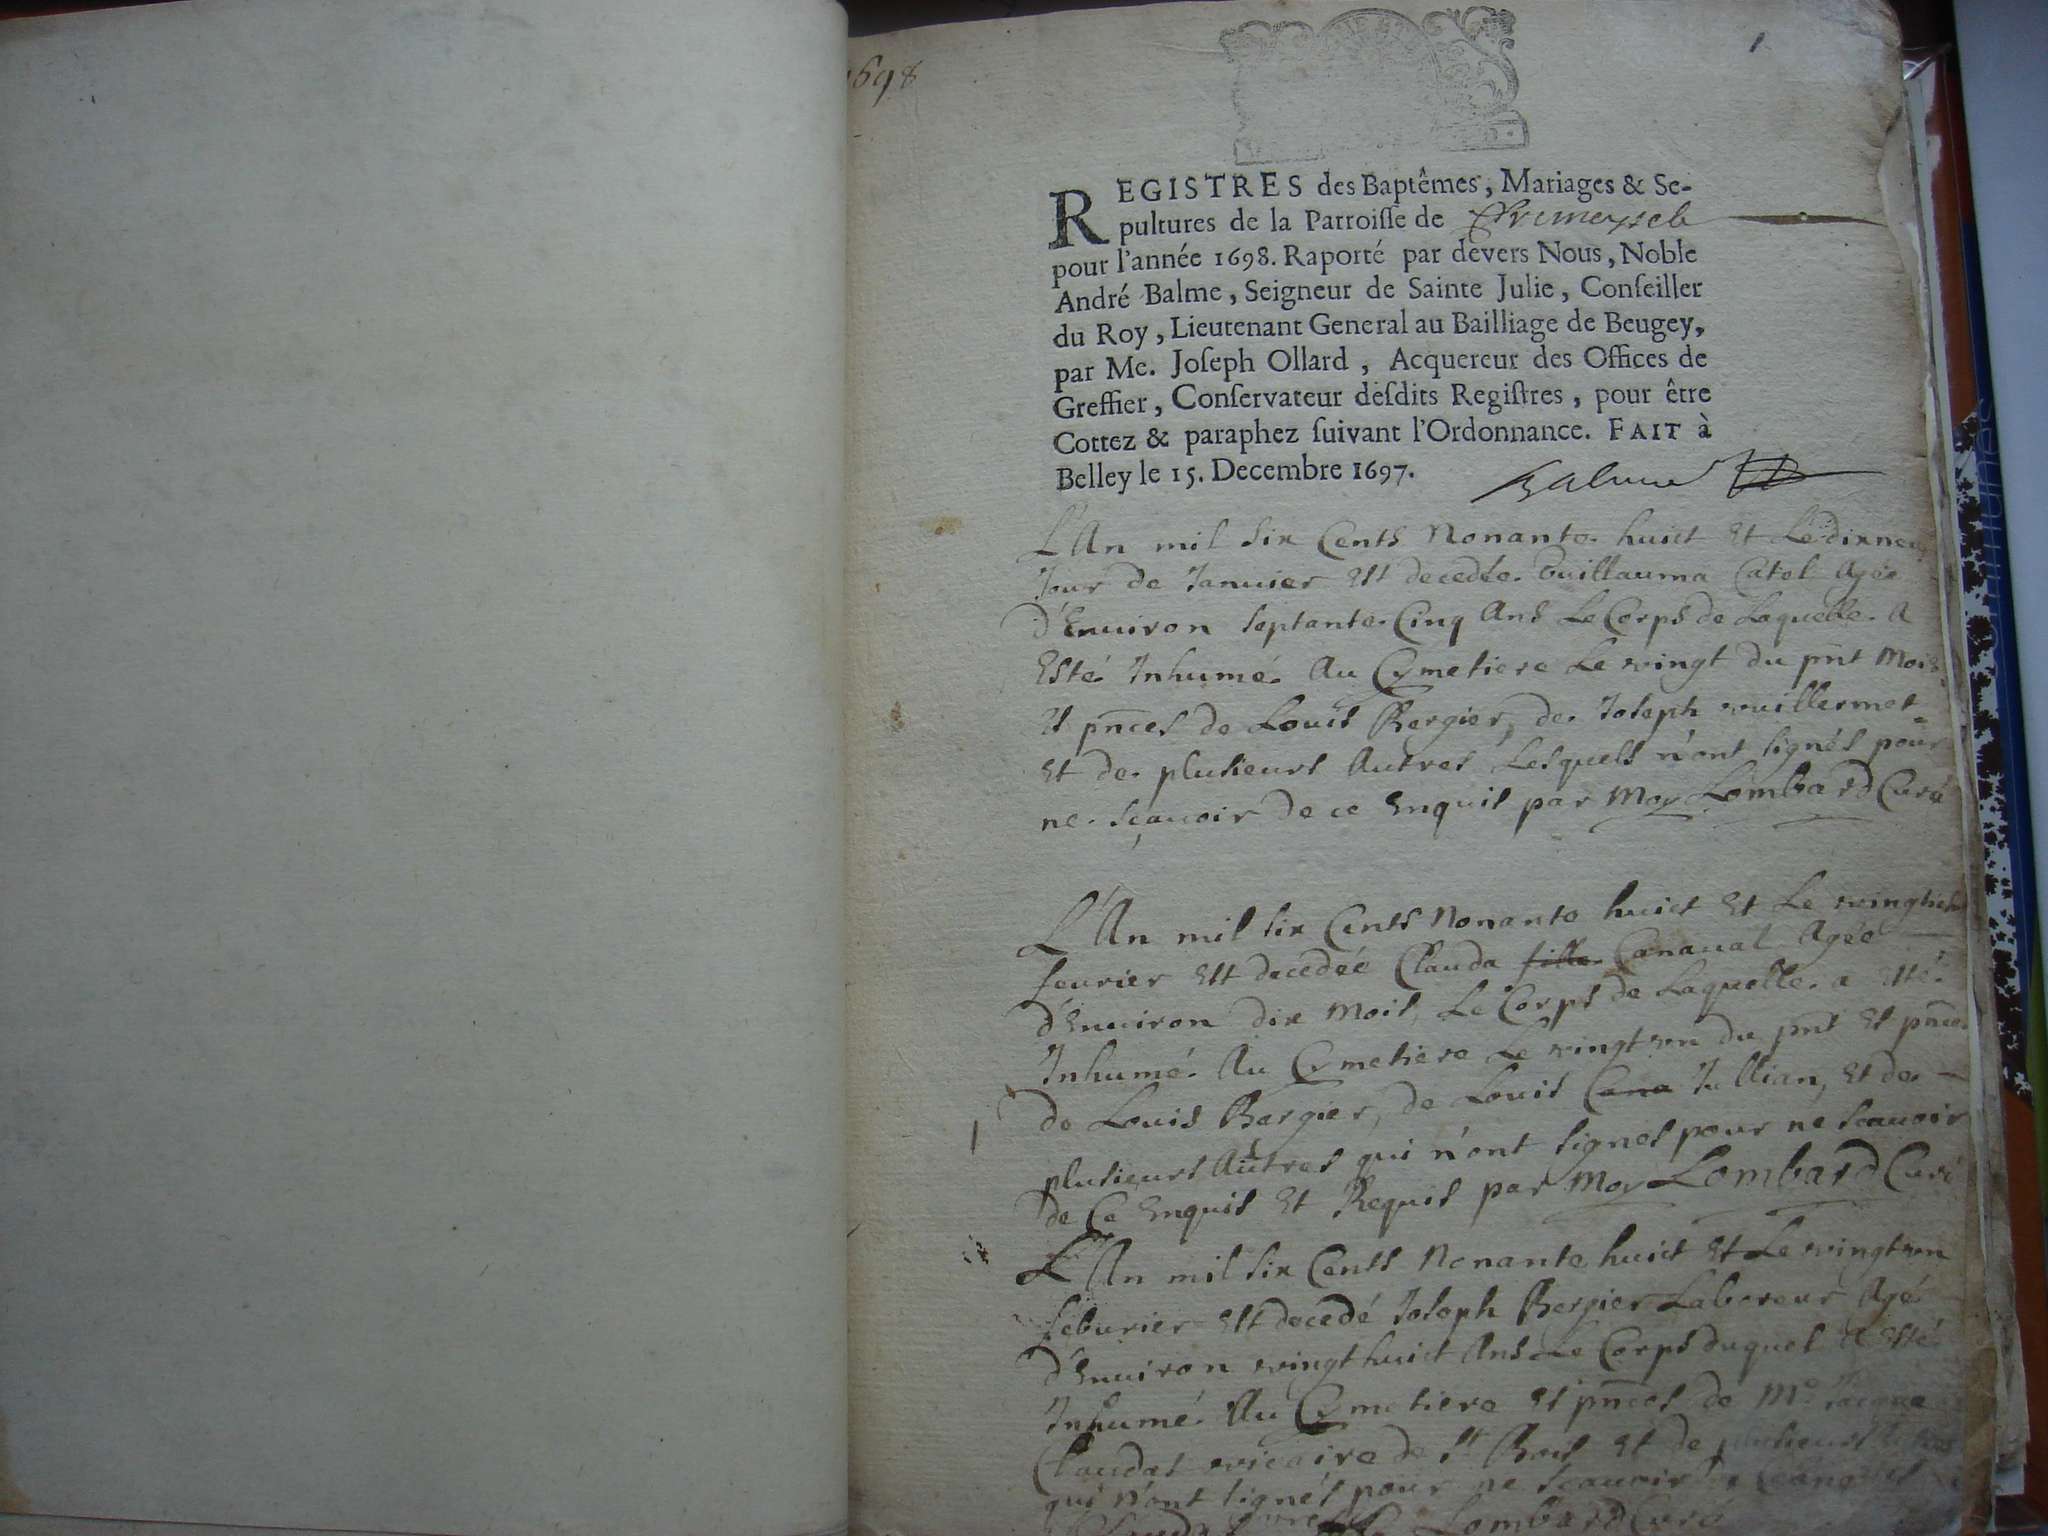 1698
1
REGISTRES des Baptêmes, Mariages & Se-
pultures de la Parroiſſe de
pour l'année 1698. Raporté par devers Nous, Noble
André Balme, Seigneur de Sainte Julie, Conſeiller
du Roy, Lieutenant General au Bailliage de Beugey,
par Me. Joſeph Ollard, Acquereur des Offices de
Greffier, Conſervateur deſdits Regiſtres, pour être
Cottez & paraphez ſuivant l'Ordonnance. FAIT à
Belley le 15. Decembre 1697.
Balme
L'An mil six Cents Nonante huict Et Le dixneu
Jour de Januier Est decedée Guillauma Catel Agée
d'Enuiron septante Cinq Ans Le Corps de Laquelle A
Esté Inhumé Au Cymetiere Le vingt du pnt Mois
Et pnces de Louis Bergier, de Joseph vuillermet
Et de plusieurs Autres Lesquels n'ont signés pour
ne sçauoir de ce Enquis par Moy Lombard Curé
L'An mil six Cents Nonante huict Et Le
feurier Est decedée Clauda fille Canaual Agée
d'Enuiron dix Mois, Le Corps de Laquelle a Esté
Inhumé Au Cymetiere Le vingt vn du pnt Et pnces
de Louis Bergier, de Louis Cana Jullian, Et de
plusieurs Autres qui n'ont signes pour ne scauoir
de Ce Enquis Et Requis par Moy Lombard Curé
L'An mil six Cents Nonante huict Et Le vingt vn
feburier Est decedé Joseph Bergier Laboreur Agé
d'Enuiron vingt huict Ans Le Corps duquel A Esté
Inhumé Au Cymetiere Et pnces de Mre
Claudat vicaire de St Bois Et de plusieurs
qui n'ont signés pour ne scauoir
Lombard Curé